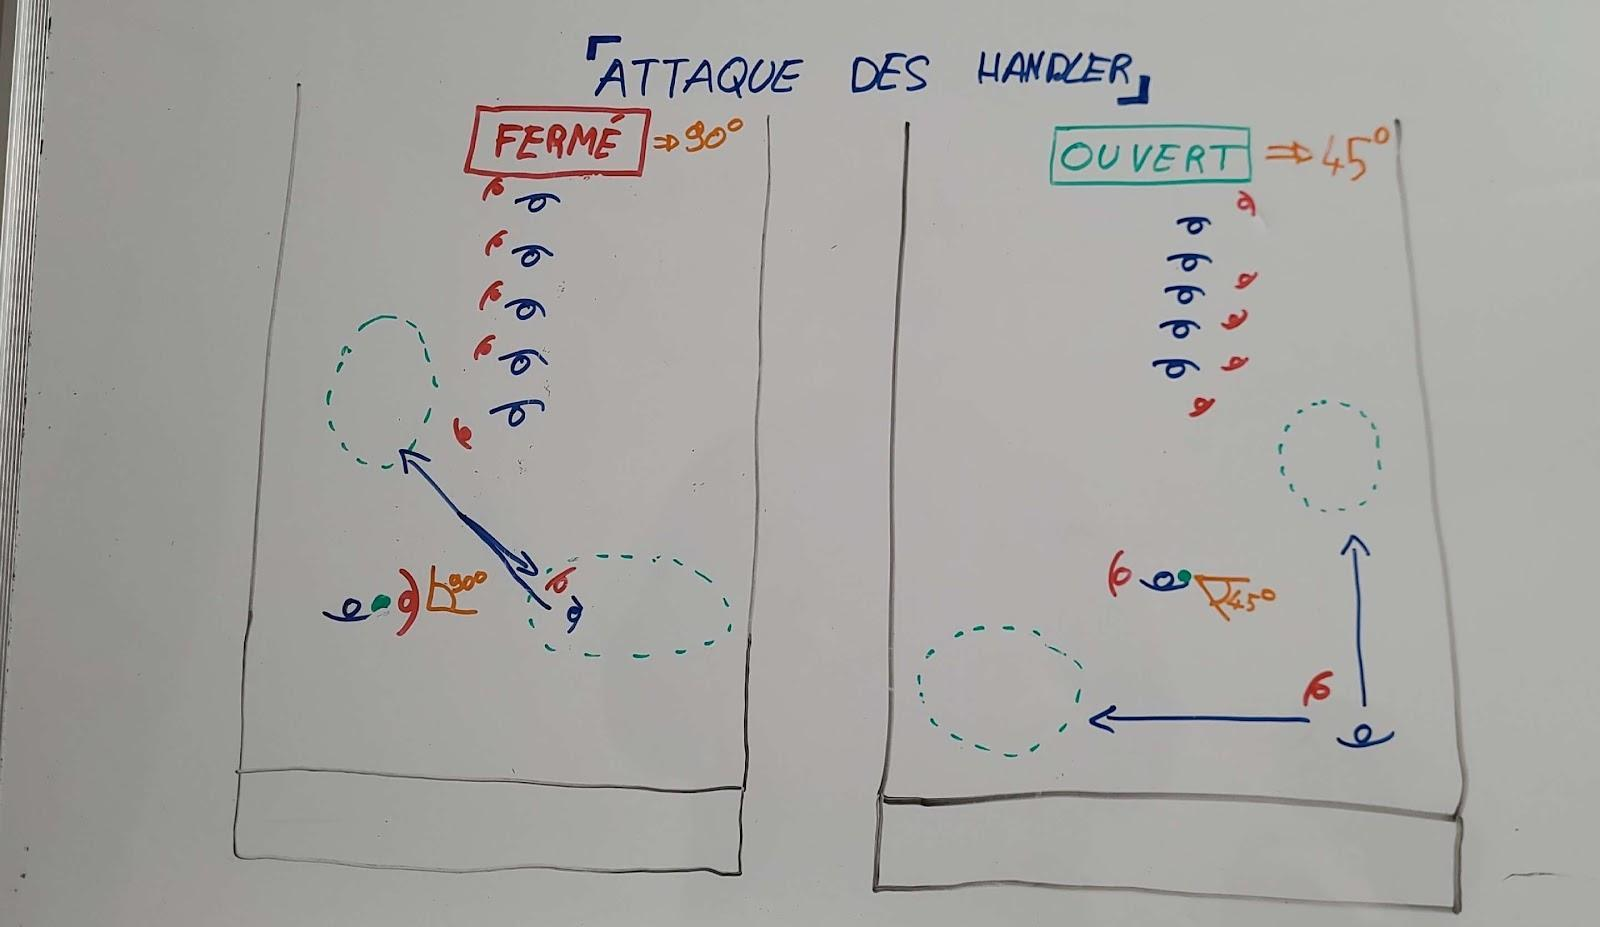 「ATTAQUE DES HANDLER」
FERMÉ ⇒ 90°
OUVERT ⇒ 45°
90°
45°